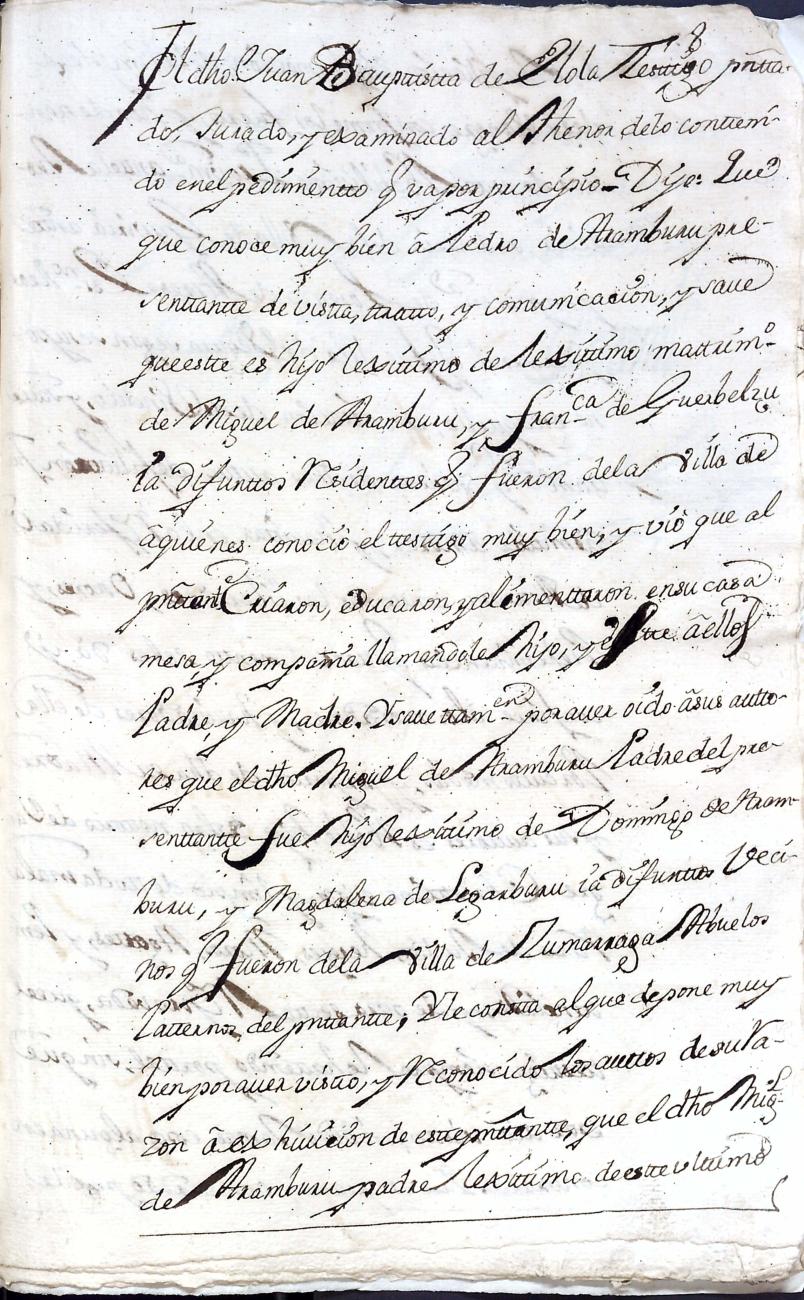 8
El dho Juan Bauptistta de Elola Testigo pntta-
do, Jurado, y examinado al Thenor delo conttení-
do enel pedimentto q̃ va por principio = Dijo: Que
que conoce muy bien â Pedro de Aramburu pre-
senttantte de vistta, tratto, y comunicacion, y save
queestte es hijo lexittimo de lexittimo mattrimº
de Miguel de Aramburu, y franca de Guerbelzu
ia difunttos Residenttes q̃ fueron dela Villa de
âquienes conociò el testtigo muy bien, y viò que al
pnttante Criaron, educaron, y alimenttaron en su casa
mesa, y compañia llamandole hijo, y estte â ellos
Padre, y Madre. Y save ttamen por aver oido âsus autto-
res que el dho Miguel de Aramburu Padre del pre-
senttantte fue hijo lexittimo de Domingo de Aram-
buru, y Magdalena de Legarburu ia difunttos Veci-
nos q̃ fueron dela Villa de Zumarraga Abuelos
Patternos del pnttantte; Y le constta al que depone muy
bien por aver visto, y Reconocido los auttos de su Ra-
zon â exhivicion de estte pnttantte, que el dho Migl
de Aramburu padre lexittimo de estte ultimo